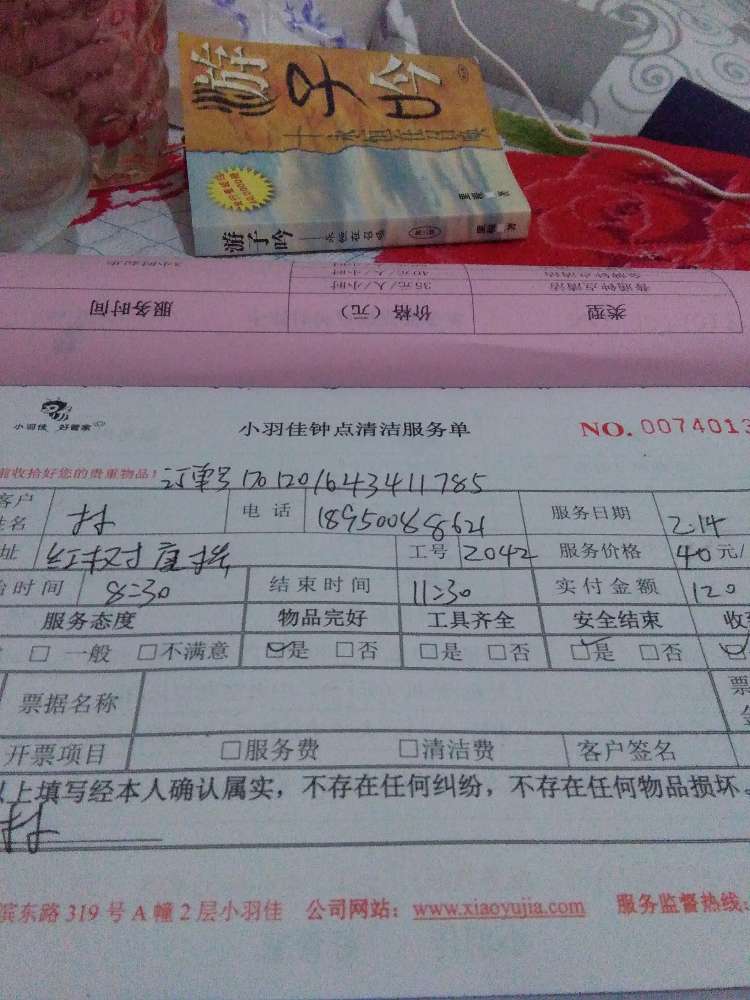 游子吟
永恒在召唤
里程 著
游子吟 永恒在召唤 里程 著
3小时起步 40元/人/小时 金牌钟点清洁
35元/人/小时 普通钟点清洁
类型 价格(元) 服务时间
小羽佳 好管家
小羽佳钟点清洁服务单
NO. 0074013
前收拾好您的贵重物品!
订单号 170120164341 1785
客户姓名 林 电话 18950088621 服务日期 2.14
址 工号 2042 服务价格 40元/
始时间 8:30 结束时间 11:30 实付金额 120
服务态度 物品完好 工具齐全 安全结束 收
□一般 □不满意 ☑是 □否 □是 □否 ☑是 □否
票据名称 票
开票项目 □服务费 □清洁费 客户签名
以上填写经本人确认属实,不存在任何纠纷,不存在任何物品损坏。
林
滨东路319号A幢2层小羽佳 公司网站:www.xiaoyujia.com 服务监督热线: